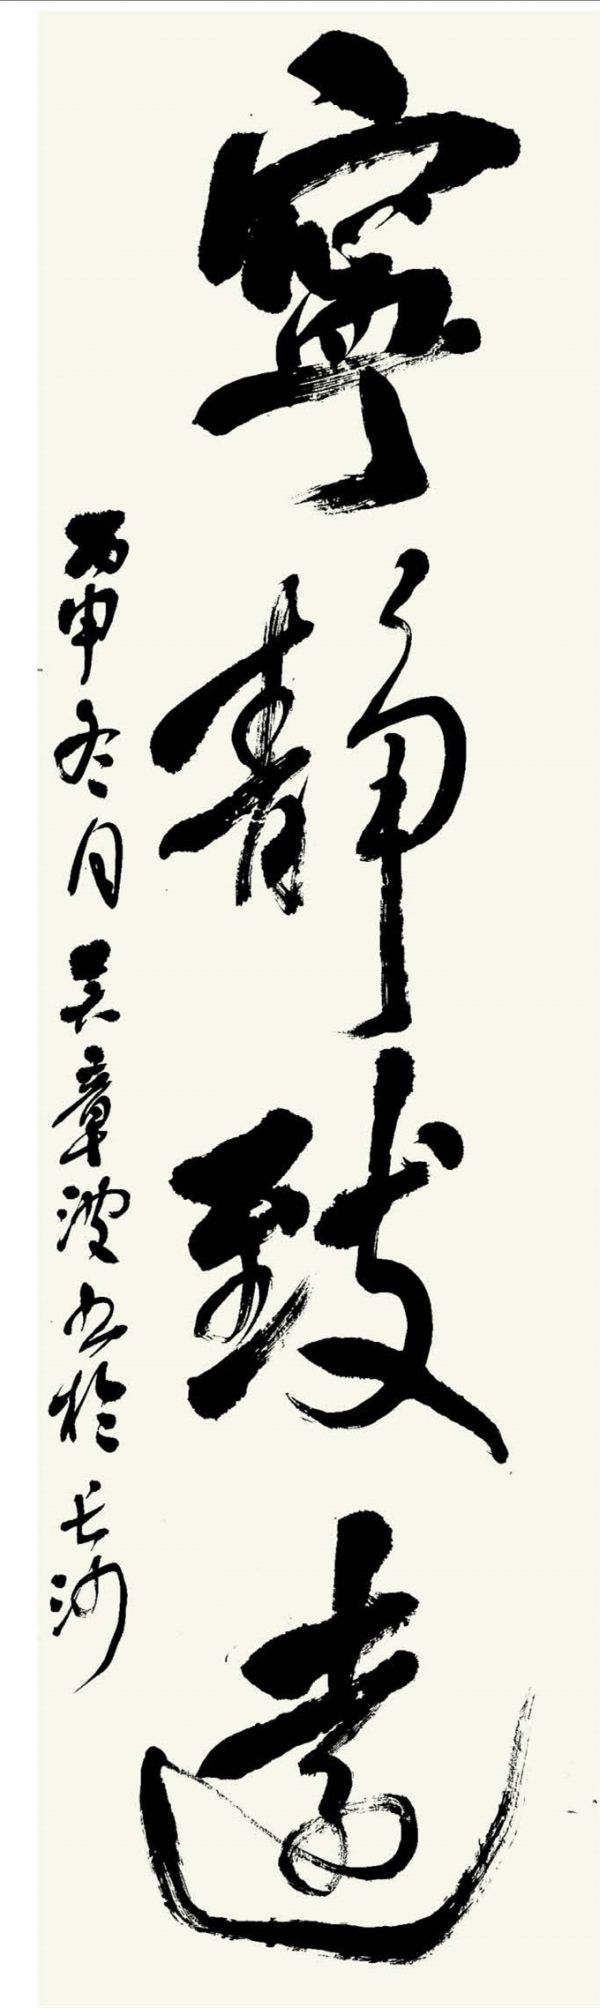 寧靜致遠
丙申冬月吴章波书於长沙